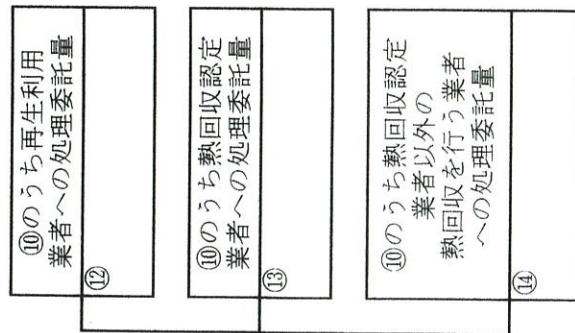 ⑩のうち再生利用
業者への処理委託量
⑫
⑩のうち熱回収認定
業者への処理委託量
⑬
⑩のうち熱回収認定
業者以外の
熱回収を行う業者
への処理委託量
⑭